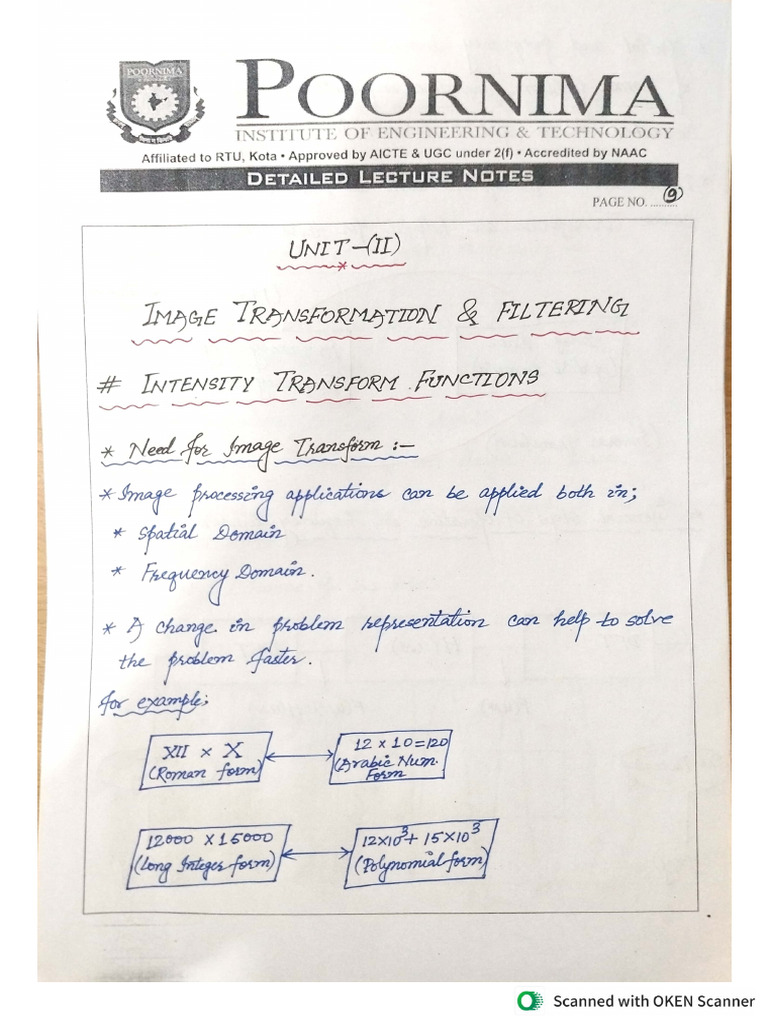 POORNIMA
POORNIMA
INSTITUTE OF ENGINEERING & TECHNOLOGY
Affiliated to RTU, Kota • Approved by AICTE & UGC under 2(f) • Accredited by NAAC
DETAILED LECTURE NOTES
PAGE NO. .......... 9
UNIT-(II)
IMAGE TRANSFORMATION & FILTERING
# INTENSITY TRANSFORM FUNCTIONS
* Need for Image Transform :-
* Image processing applications can be applied both in;
* Spatial Domain
* Frequency Domain.
* A change in problem representation can help to solve
the problem faster.
for example;
XII × X
(Roman form)
12 × 10 = 120
(Arabic Num.
Form
12000 × 15000
(Long Integer form)
12×10³ + 15×10³
(Polynomial form)
Scanned with OKEN Scanner